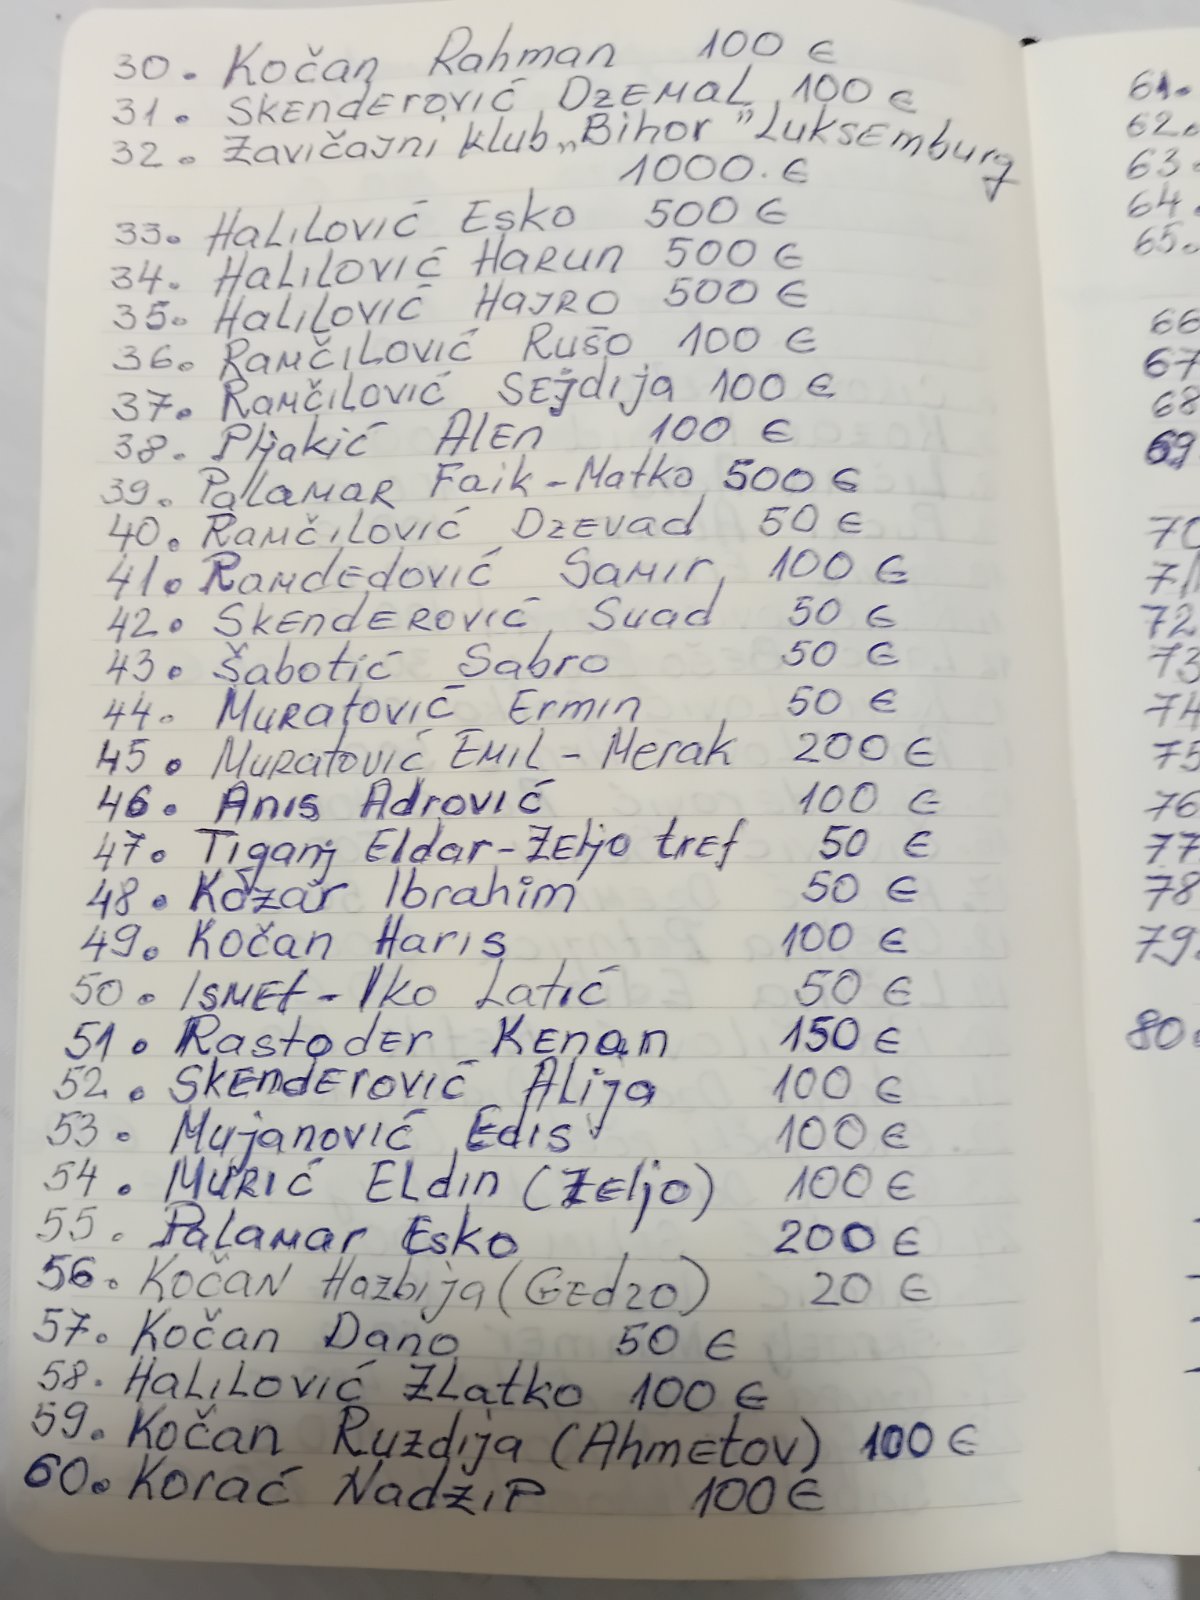 30. Kočan Rahman 100 €
31. Skenderović Dzemal 100 €
32. Zavičajni klub „Bihor" Luksemburg
1000. €
33. Halilović Esko 500 €
34. Halilović Harun 500 €
35. Halilović Hajro 500 €
36. Ramčilović Rušo 100 €
37. Ramčilović Sejdija 100 €
38. Pljakić Alen 100 €
39. Palamar Faik-Matko 500 €
40. Ramčilović Dzevad 50 €
41. Ramdedović Samir 100 €
42. Skenderović Suad 50 €
43. Šabotić Sabro 50 €
44. Muratović Ermin 50 €
45. Muratović Emil - Merak 200 €
46. Anis Adrović 100 €
47. Tiganj Eldar-Zeljo tref 50 €
48. Kozar Ibrahim 50 €
49. Kočan Haris 100 €
50. Ismet-Iko Latić 50 €
51. Rastoder Kenan 150 €
52. Skenderović Alija 100 €
53. Mujanović Edis 100 €
54. Murić Eldin (Zeljo) 100 €
55. Palamar Esko 200 €
56. Kočan Hazbija (Gedzo) 20 €
57. Kočan Dano 50 €
58. Halilović Zlatko 100 €
59. Kočan Ruzdija (Ahmetov) 100 €
60. Korać Nadzip 100 €
61.
62.
63.
64.
65.
66
67
68
69.
70
71
72
73
74
75
76
77
78
79.
80.